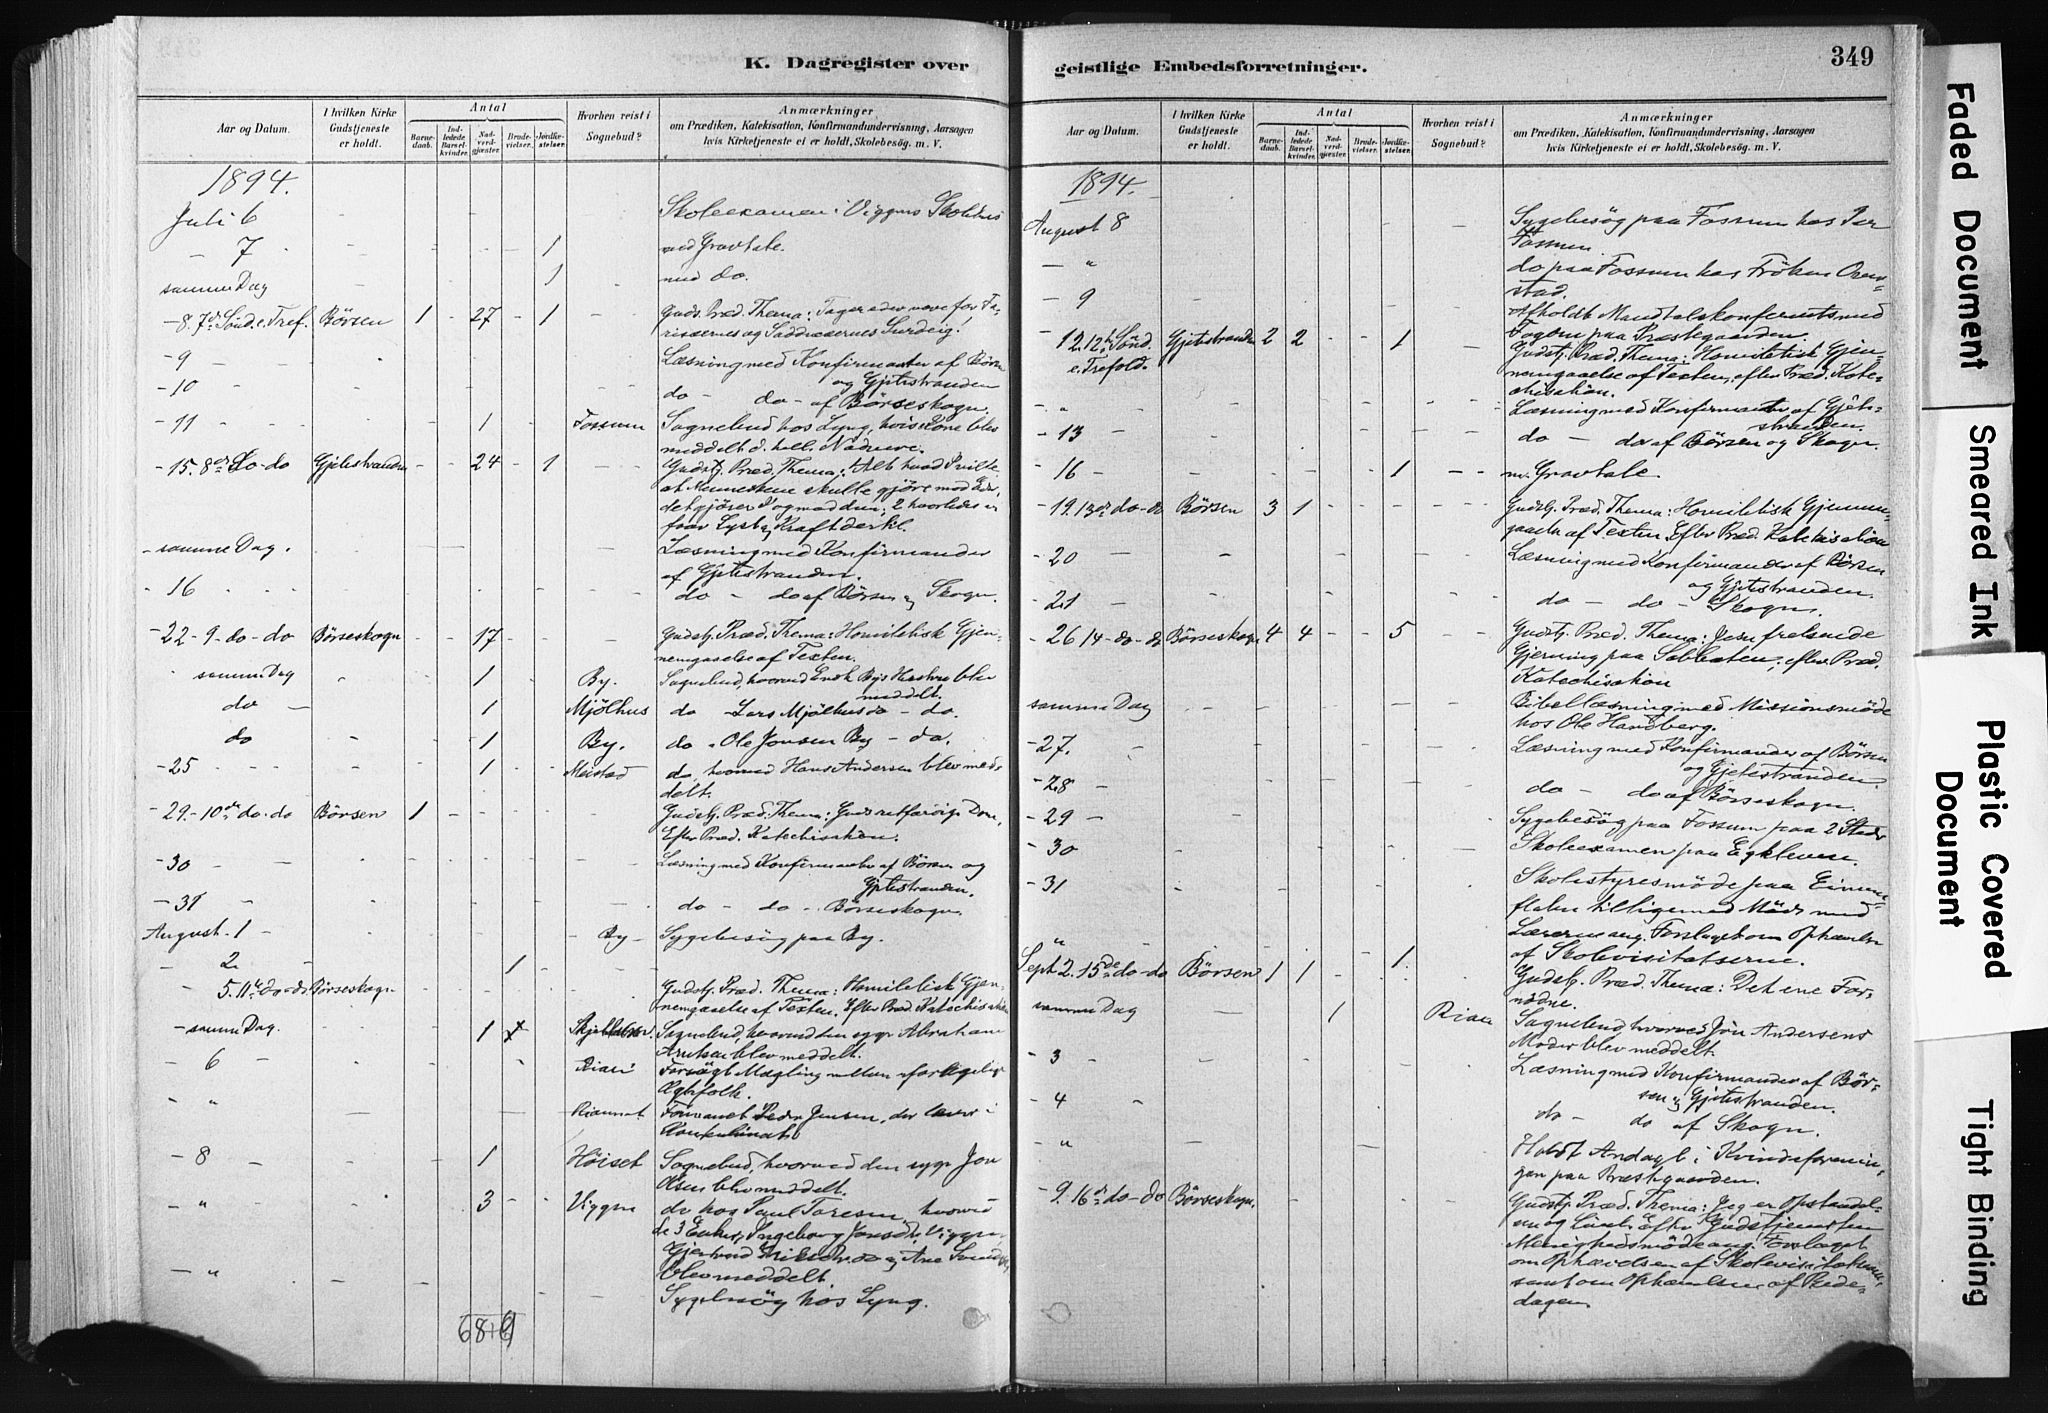 K. Dagregister over
Aar og Datum.
I hvilken Kirke Gudstjeneste er holdt.
Antal
Barne- daab.
Ind- ledede Barsel- kvinder.
Nad- verd- gjæster.
Brude- vielser.
Jordfæ- stelser.
Hvorhen reist i Sognebud?
Anmærkninger
om Prædiken, Katekisation, Konfirmandundervisning, Aarsagen
hvis Kirketjeneste ei er holdt, Skolebesøg. m. V.
1894.
Juli 6 Skoleexamen i Viggens Skolehus
- 7 1 med Gravtale.
samme Dag 1 med do.
- 8. 7de Sönd. e. Tref. Börsen 1 - 27 - 1 Guds. Præd. Thema: Tager eder vare for Fa-
risæernes og Sadducæernes Surdeig!
- 9 Læsning med Konfirmanter af Börsen
og Gjetestranden
- 10 do - do - af Börseskogn.
- 11 1 Fossum Sognebud hos Lyng, hvis Kone blev
meddelt d. hell. Nadvere.
- 15. 8de do - do Gjetestranden - - 24 - 1 Gudstj. Præd. Thema: Alt hvad I ville
at Menneskene skulle gjöre mod Eder,
det gjører I og mod dem; 2 hvorledes vi
faar Lyst og Kraft dertil.
- samme Dag. Læsning med Konfirmander
af Gjetestranden.
- 16 do - do af Börsen og Skogn.
- 22 - 9 - do - do Börseskogn - - 17 - Gudstj. Præd. Thema: Homiletisk Gjen-
nemgaaelse af Texten.
samme Dag 1 By. Sognebud, hvorved Enke Byes Hustru blev
meddelt.
do - 1 Mjölhus do Lars Mjölhus do - do.
do 1 By. do - Ole Jonsen By - do.
- 25 1 Meistad do, hvorved Hans Andersen blev med-
delt.
- 29 - 10de do - do Börsen 1 - Gudstj. Præd. Thema: Guds retfærdige Dom,
Efter Præd. Katechisation.
- 30 Læsning med Konfirmander af Börsen og
Gjetestranden.
- 31 do - do - Börseskogn.
August - 1 - By - Sygebesög paa By.
- 2 1
- 5. 11te do - do Börseskogn Gudstj. Præd. Thema: Homiletisk Gjen-
nemgaaelse af Texten. Efter Præd. Katechisation
- samme Dag. 1 Sognebud, hvorved den syge Abraham
blev meddelt.
- 6 Forsøgt Mægling mellem
Ægtefolk.
- " Formanet Peder Jensen, der lever i
Konkubinat.
- 8 1 Höiset Sognebud, hvorved den syge Jon
Olsen blev meddelt.
- " 3 Viggen do hos Paul Toresen, hvorved
de 3 Enker, Ingeborg Jonsdt. Viggen,
blev meddelt.
- " Sygebesög hos Lyng.
68+9
geistlige Embedsforretninger.
349
Aar og Datum.
I hvilken Kirke Gudstjeneste er holdt.
Antal
Barne- daab.
Ind- ledede Barsel- kvinder.
Nad- verd- gjæster.
Brude- vielser.
Jordfæ- stelser.
Hvorhen reist i Sognebud?
Anmærkninger
om Prædiken, Katekisation, Konfirmandundervisning, Aarsagen
hvis Kirketjeneste ei er holdt, Skolebesøg. m. V.
1894.
August 8 Sygebesög paa Fossum hos Per
Fossum
- " do paa Fossum hos Fröken
- 9 Afholdt Mandtalskonferents med
Fogden paa Præstegaarden.
- 12. 12te Sönd. e. Trefold. Gjetestranden 2 2 - - 1 Gudstj. Præd. Thema: Homiletisk Gjen-
nemgaaelse af Texten, efter Præd. Kate-
chisation.
- " Læsning med Konfirmander af Gjete-
stranden.
- 13 do - do af Börsen og Skogn.
- 16 1 m. Gravtale.
- 19. 13de do - do Börsen 3 1 Gudstj. Præd. Thema: Homiletisk Gjennem-
gaaelse af Texten. Efter Præd. Katekisation
- 20 Læsning med Konfirmander af Börsen
og Gjetestranden.
- 21 do - do - Skogn.
- 26 14 - do - do Börseskogn 4 4 - - 5 Gudstj. Præd. Thema: Jesu frelsende
Gjerning paa Sabbaten; efter Præd.
Katechisation
samme Dag Bibellæsning med Missionsmöde
hos Ole Handberg.
- 27. Læsning med Konfirmander af Börsen
og Gjetestranden.
- 28 do - do af Börseskogn.
- 29 Sygebesög paa Fossum paa 2 Steder
- 30 Skoleexamen paa Egkleven.
- 31 Skolestyresmöde paa
tilligemed Möde med
Lærerne ang. Forslaget om Ophævelse
af Skolevisitatserne.
Sept 2. 15de do - do Börsen 1 1 - - 1 Gudstj. Præd. Thema: Det ene For-
nödne.
samme Dag 1 Sognebud, hvorved Jon Andersens
Moder blev meddelt.
- 3 Læsning med Konfirmander af Bör-
sen og Gjetestranden.
- 4 do - do af Skogn.
- " Holdt Andagt i Kvindeforenin-
gen paa Præstegaarden.
- 9. 16de do - do Börseskogn. Gudstj. Præd. Thema: Jeg er Opstandel-
sen og Livet. Efter Gudstjenesten
Menighedsmöde ang. Forslaget
om Ophævelsen af Skolevisitatserne,
samt om Ophævelsen af Bede-
dagen.
Faded Document
Smeared Ink
Plastic Covered Document
Tight Binding